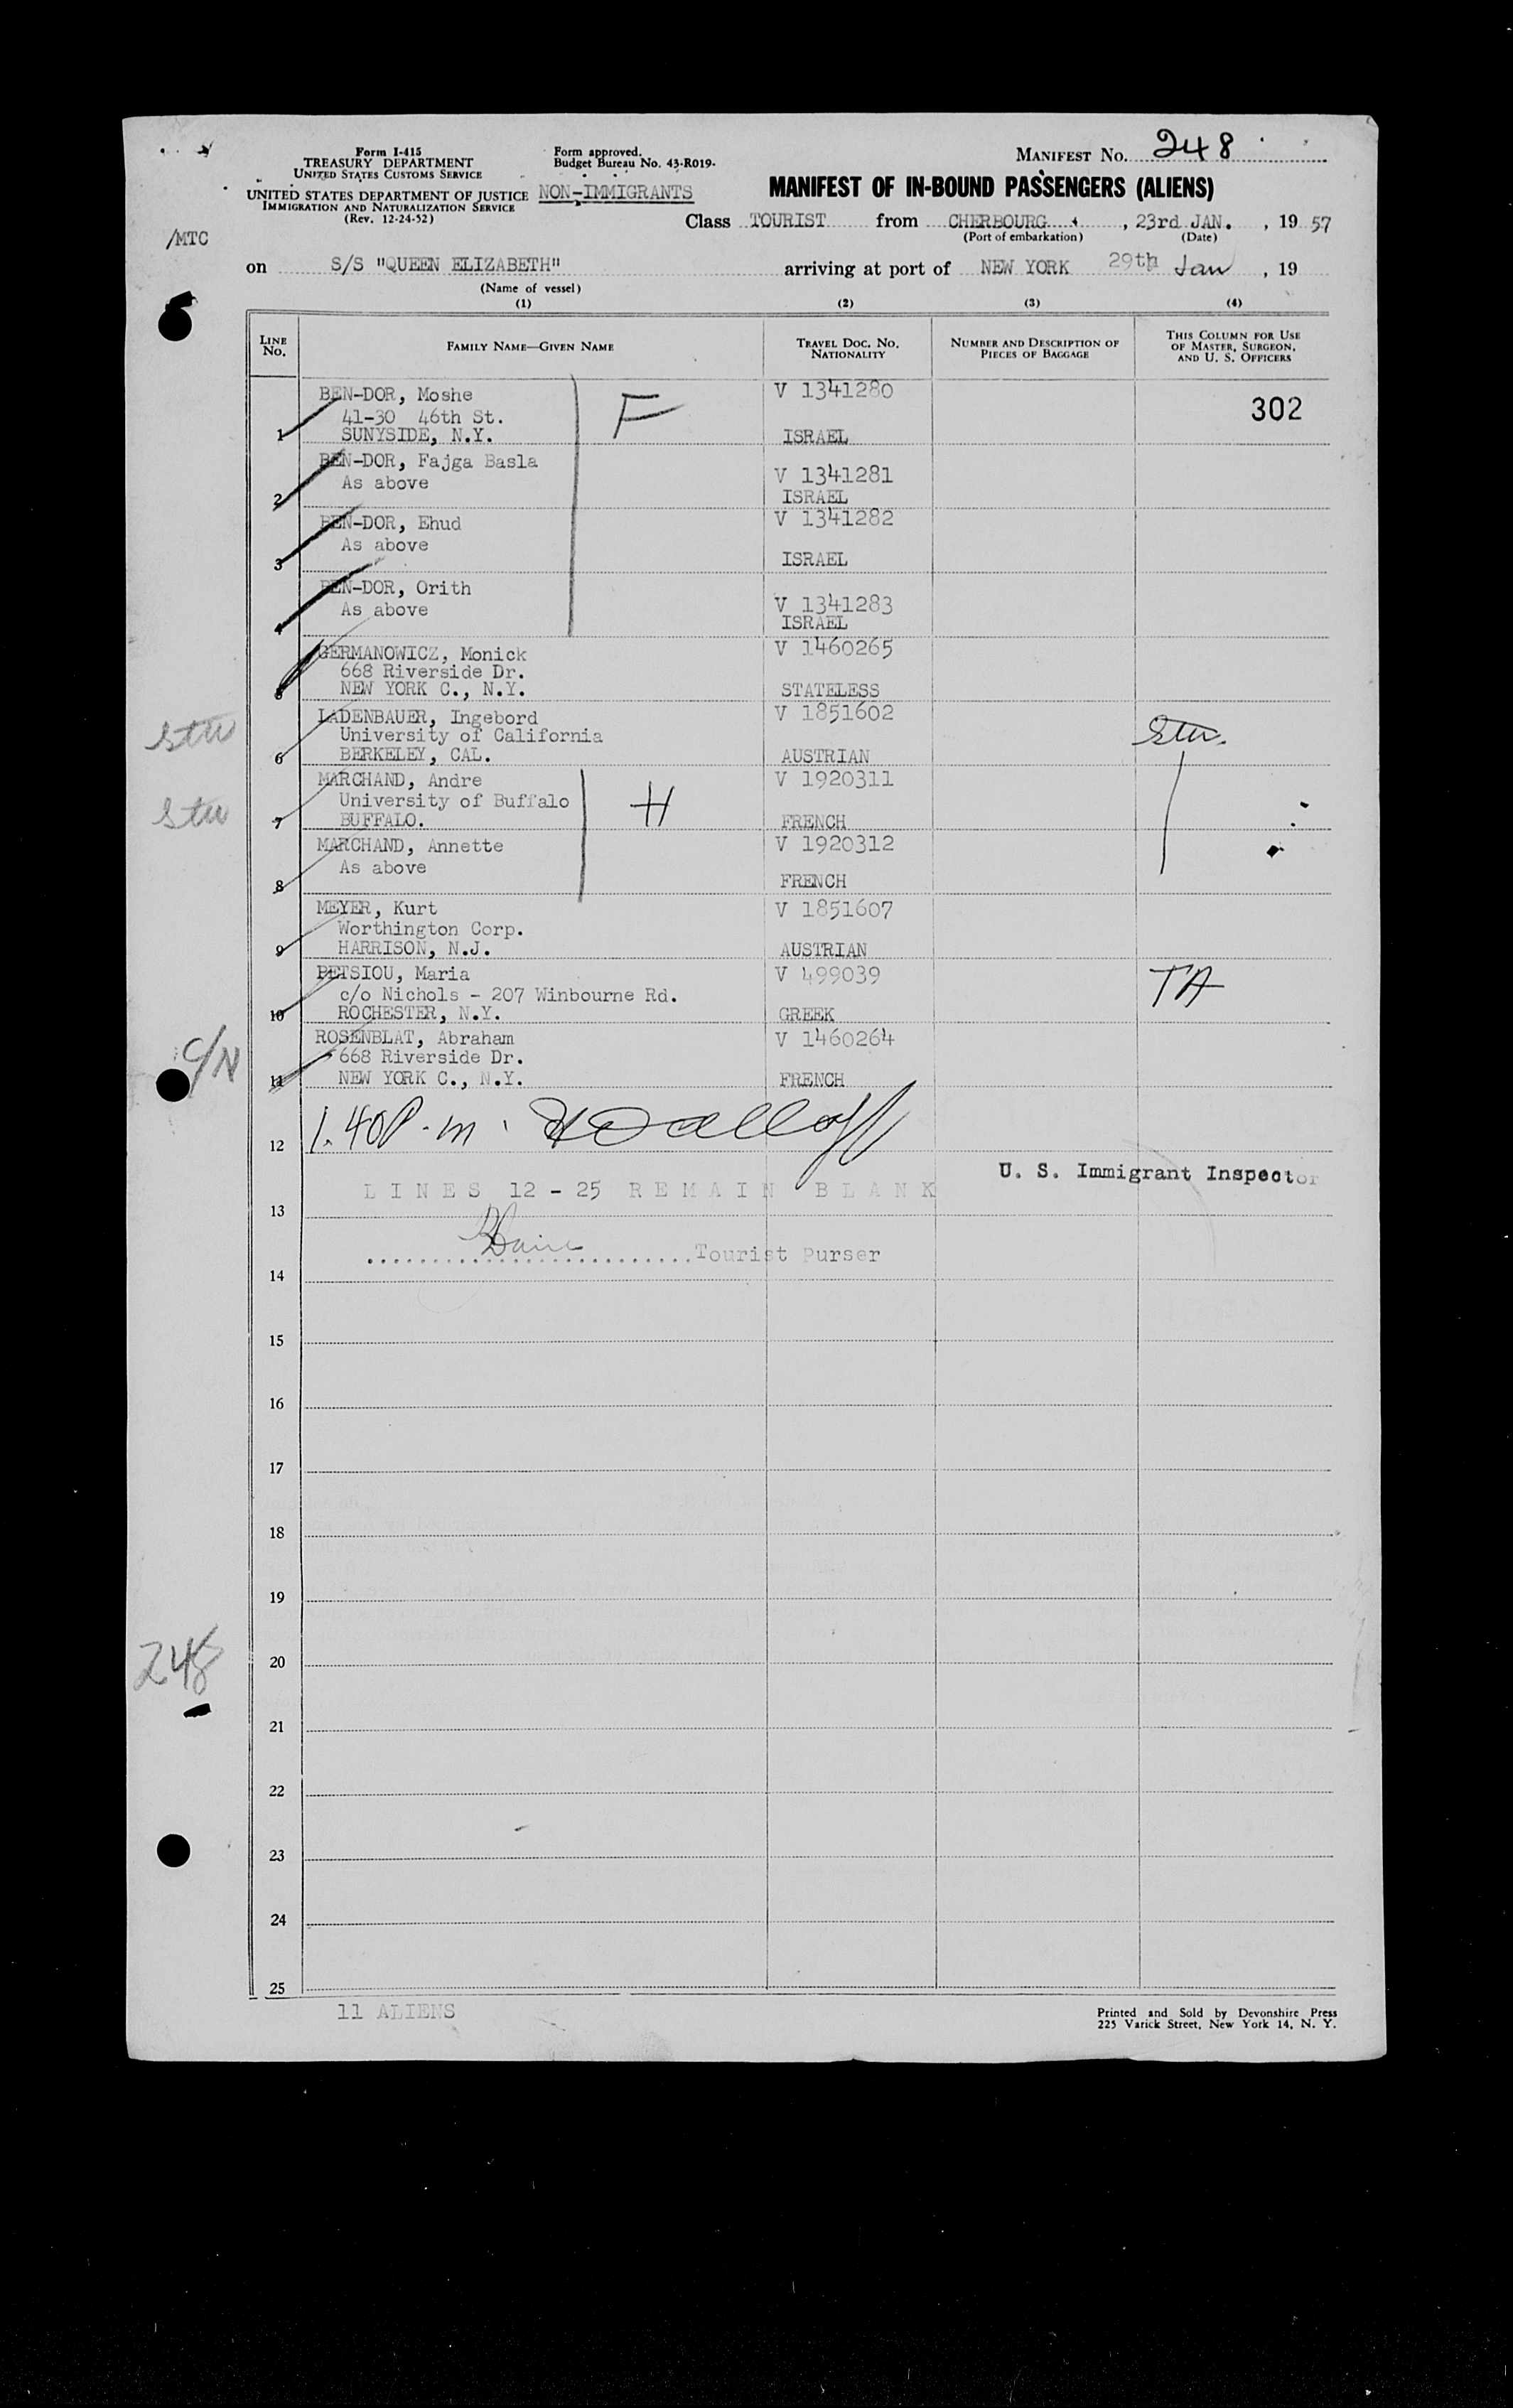 Form I-415
TREASURY DEPARTMENT
UNITED STATES CUSTOMS SERVICE
UNITED STATES DEPARTMENT OF JUSTICE
IMMIGRATION AND NATURALIZATION SERVICE
(Rev. 12-24-52)
Form approved.
Budget Bureau No. 43-R019-
NON-IMMIGRANTS
MANIFEST No. 248
MANIFEST OF IN-BOUND PASSENGERS (ALIENS)
/MTC
Class TOURIST from CHERBOURG, 23rd JAN., 19 57
(Port of embarkation) (Date)
on S/S "QUEEN ELIZABETH" arriving at port of NEW YORK 29th Jan, 19
(Name of vessel)
(1) (2) (3) (4)
LINE No. FAMILY NAME—GIVEN NAME TRAVEL DOC. No. NATIONALITY NUMBER AND DESCRIPTION OF PIECES OF BAGGAGE THIS COLUMN FOR USE OF MASTER, SURGEON, AND U. S. OFFICERS
BEN-DOR, Moshe V 1341280
41-30 46th St. F 302
1 SUNYSIDE, N.Y. ISRAEL
BEN-DOR, Fajga Basla V 1341281
2 As above ISRAEL
BEN-DOR, Ehud V 1341282
3 As above ISRAEL
BEN-DOR, Orith V 1341283
4 As above ISRAEL
GERMANOWICZ, Monick V 1460265
668 Riverside Dr.
5 NEW YORK C., N.Y. STATELESS
LADENBAUER, Ingebord V 1851602
stu University of California Stu.
6 BERKELEY, CAL. AUSTRIAN
MARCHAND, Andre V 1920311
stu University of Buffalo H
7 BUFFALO. FRENCH
MARCHAND, Annette V 1920312
As above
8 FRENCH
MEYER, Kurt V 1851607
Worthington Corp.
9 HARRISON, N.J. AUSTRIAN
PETSIOU, Maria V 499039 TA
c/o Nichols - 207 Winbourne Rd.
10 ROCHESTER, N.Y. GREEK
ROSENBLAT, Abraham V 1460264
C/N 668 Riverside Dr.
11 NEW YORK C., N.Y. FRENCH
12 1.40 P.m.
U. S. Immigrant Inspector
LINES 12 - 25 REMAIN BLANK
13
Tourist Purser
14
15
16
17
18
19
248
20
21
22
23
24
25
11 ALIENS
Printed and Sold by Devonshire Press
225 Varick Street, New York 14, N. Y.